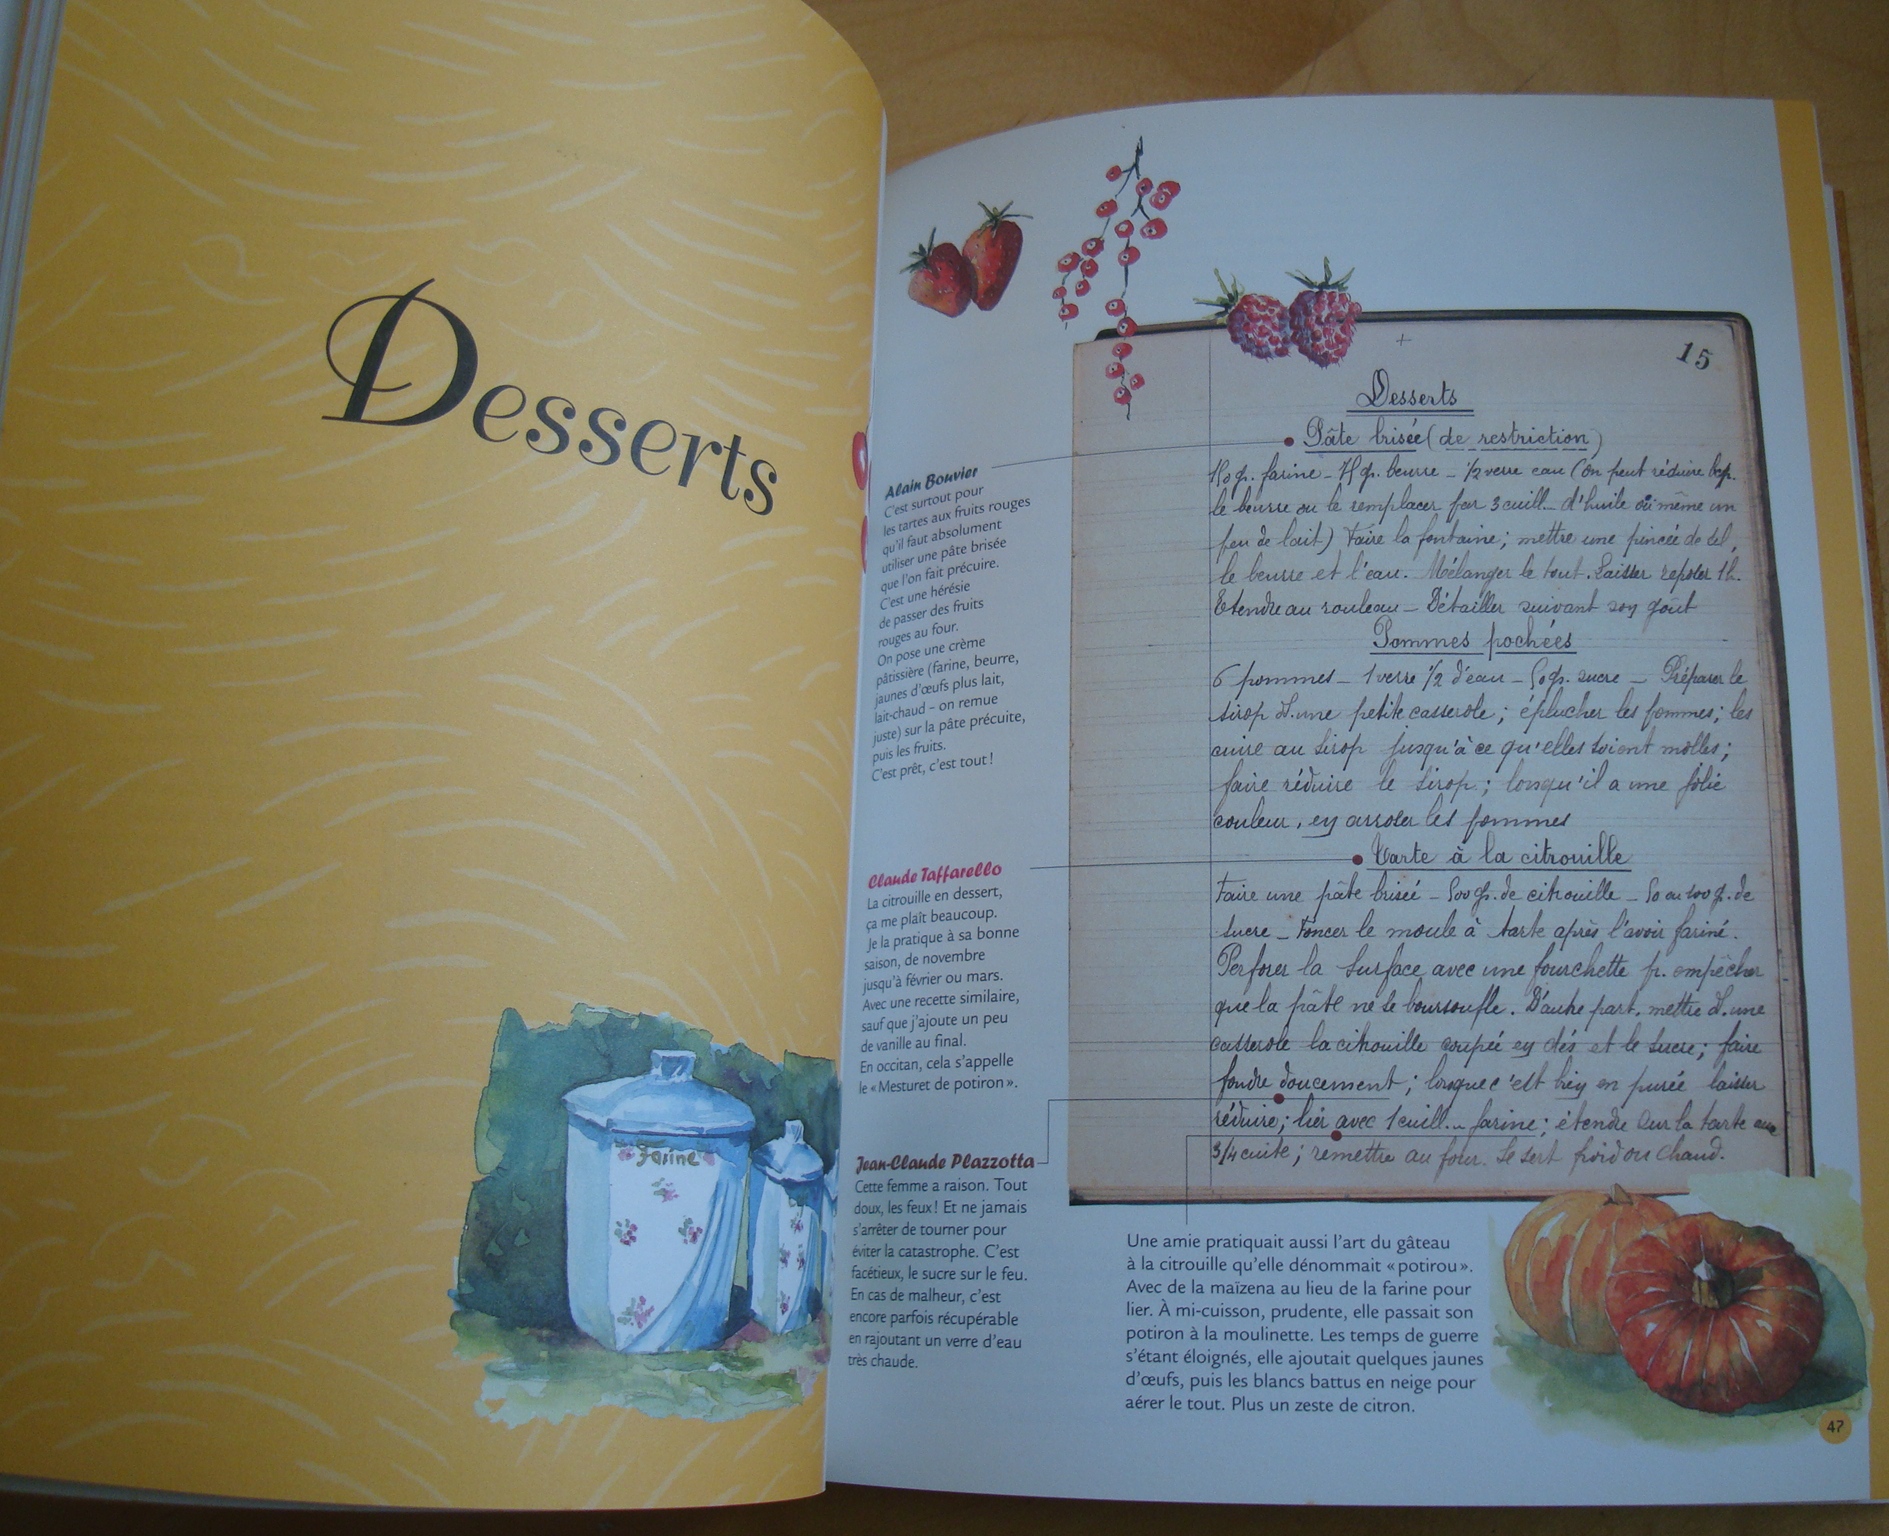 Desserts
Farine
Alain Bouvier
C'est surtout pour
les tartes aux fruits rouges
qu'il faut absolument
utiliser une pâte brisée
que l'on fait précuire.
C'est une hérésie
de passer des fruits
rouges au four.
On pose une crème
pâtissière (farine, beurre,
jaunes d'œufs plus lait,
lait-chaud – on remue
juste) sur la pâte précuite,
puis les fruits.
C'est prêt, c'est tout !
Claude Taffarello
La citrouille en dessert,
ça me plaît beaucoup.
Je la pratique à sa bonne
saison, de novembre
jusqu'à février ou mars.
Avec une recette similaire,
sauf que j'ajoute un peu
de vanille au final.
En occitan, cela s'appelle
le « Mesturet de potiron ».
Jean-Claude Plazzotta
Cette femme a raison. Tout
doux, les feux ! Et ne jamais
s'arrêter de tourner pour
éviter la catastrophe. C'est
facétieux, le sucre sur le feu.
En cas de malheur, c'est
encore parfois récupérable
en rajoutant un verre d'eau
très chaude.
15
Desserts
Pâte brisée (de restriction)
farine – beurre – 1/2 verre eau (On peut réduire bcp.
le beurre ou le remplacer par 3 cuill... d'huile ou même un
peu de lait) Faire la fontaine ; mettre une pincée de sel,
le beurre et l'eau. Mélanger le tout. Laisser reposer 1h.
Etendre au rouleau – Détailler suivant son goût
Pommes pochées
6 pommes – 1 verre 1/2 d'eau – 50 gr. sucre – Préparer le
sirop d. une petite casserole ; éplucher les pommes ; les
cuire au sirop jusqu'à ce qu'elles soient molles ;
faire réduire le sirop ; lorsqu'il a une jolie
couleur, en arroser les pommes
Tarte à la citrouille
Faire une pâte brisée – 500 gr. de citrouille – 50 au 100 gr. de
sucre – Foncer le moule à tarte après l'avoir fariné.
Perforer la surface avec une fourchette p. empêcher
que la pâte ne se boursoufle. D'autre part, mettre d. une
casserole la citrouille coupée en dés et le sucre ; faire
fondre doucement ; lorsque c'est bien en purée laisser
réduire ; lier avec 1 cuill... farine ; étendre sur la tarte aux
3/4 cuite ; remettre au four. Se sert froid ou chaud.
Une amie pratiquait aussi l'art du gâteau
à la citrouille qu'elle dénommait « potirou ».
Avec de la maïzena au lieu de la farine pour
lier. À mi-cuisson, prudente, elle passait son
potiron à la moulinette. Les temps de guerre
s'étant éloignés, elle ajoutait quelques jaunes
d'œufs, puis les blancs battus en neige pour
aérer le tout. Plus un zeste de citron.
47